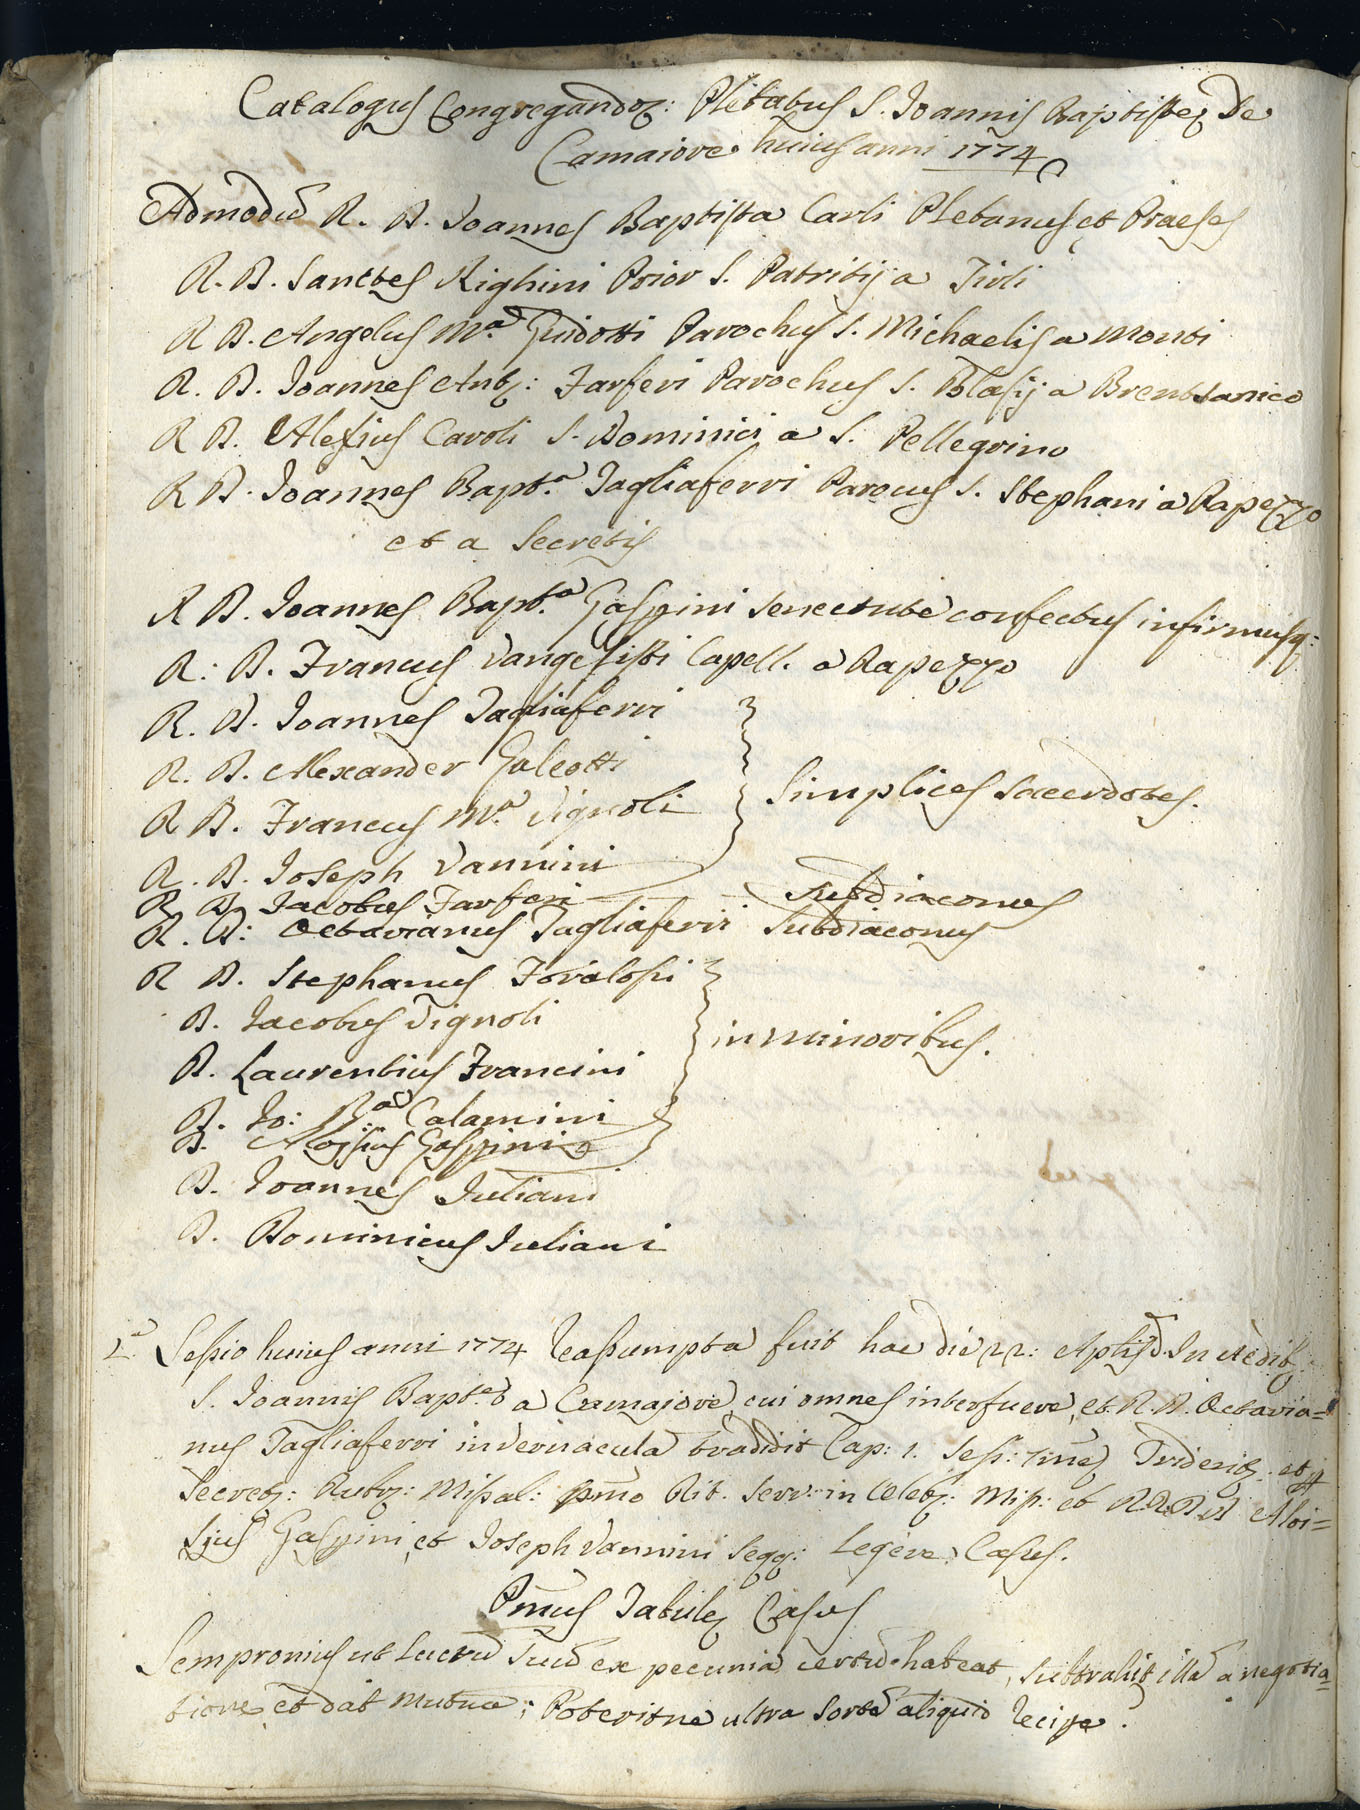 Catalogus Congregandor: Plebatus S. Joannis Baptiste De
Camaiore huius anni 1774
Admodu R. D. Joannes Baptista Carli Plebanus et Praeses
R. D. Santtes Righini Prior S. Patritij a
R D. Angelus Ma. Guidotti Parochus S. Michaelis a Monti
R. D. Joannes Ant: Farferi Parochus S. Blasij a
R D. Alexius Caroli S. Dominici a S. Pellegrino
R D. Joannes Bapt.a Tagliaferri Parocus S. Stephani a Rapezzo
et a Secretis
R D. Joannes Bapt.a Gaspini senectute confectus infirmusq:
R: D. Francus Vangelisti Capell. a Rapezzo
R. D. Joannes Tagliaferri
R. D. Alexander Galeotti
R D. Francus Ma. Vignoli
Simplices Sacerdotes.
R. D. Joseph Vannini
R D. Jacobus Farferi Subdiaconus
R. D: Octavianus Tagliaferri Subdiaconus
R D. Stephanus
D. Jacobus Vignoli
in minoribus.
D. Laurentius Francini
D. Jo: B:a Calamini
D. Aloysius Gaspini
D. Joannes Juliani
D. Dominicus Juliani
Sessio huius anni 1774 reassumpta fuit hac die 22: Aplis In Aedib
S. Joannis Bapt. a Camajore cui omnes interfuere, et R. D. Octavia=
nus Tagliaferri in vernacula tradidit Cap: 1. Sess: et
Secret: Rubr: Missal: pmo Rit. Serv: in Celeb: Miss: et R.R. D.D. Aloi=
sius Gaspini, et Joseph Vannini seqq: legere Casus.
Pmus Tabule Casus
Sempronius ut lucru suu ex pecunia certu habeat, subtrahit illa a negotia=
tione, et dat mutuo; Poteritne ultra sorte aliquid recipe?